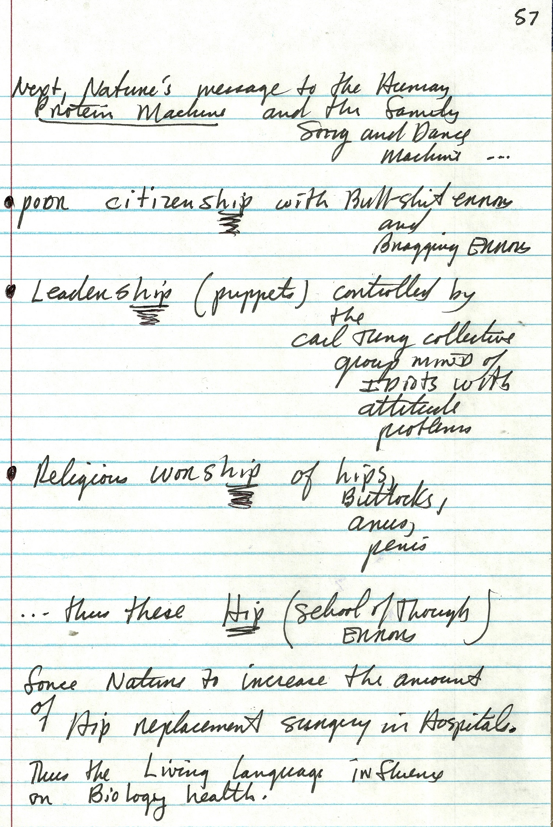 57
Next, Nature's message to the Human
Protein Machine and the Family
Song and Dance
Machine ...
• poor citizenship with Bullshit errors
and
Bragging Errors
• Leadership (puppets) controlled by
the
Carl Jung collective
group mind of
Idiots with
attitude
problems
• Religious worship of hips,
Buttocks,
anus,
penis
... thus these Hip (School of Though
Errors)
Force Nature to increase the amount
of
Hip replacement surgery in Hospitals.
Thus the Living language influence
on Biology health.